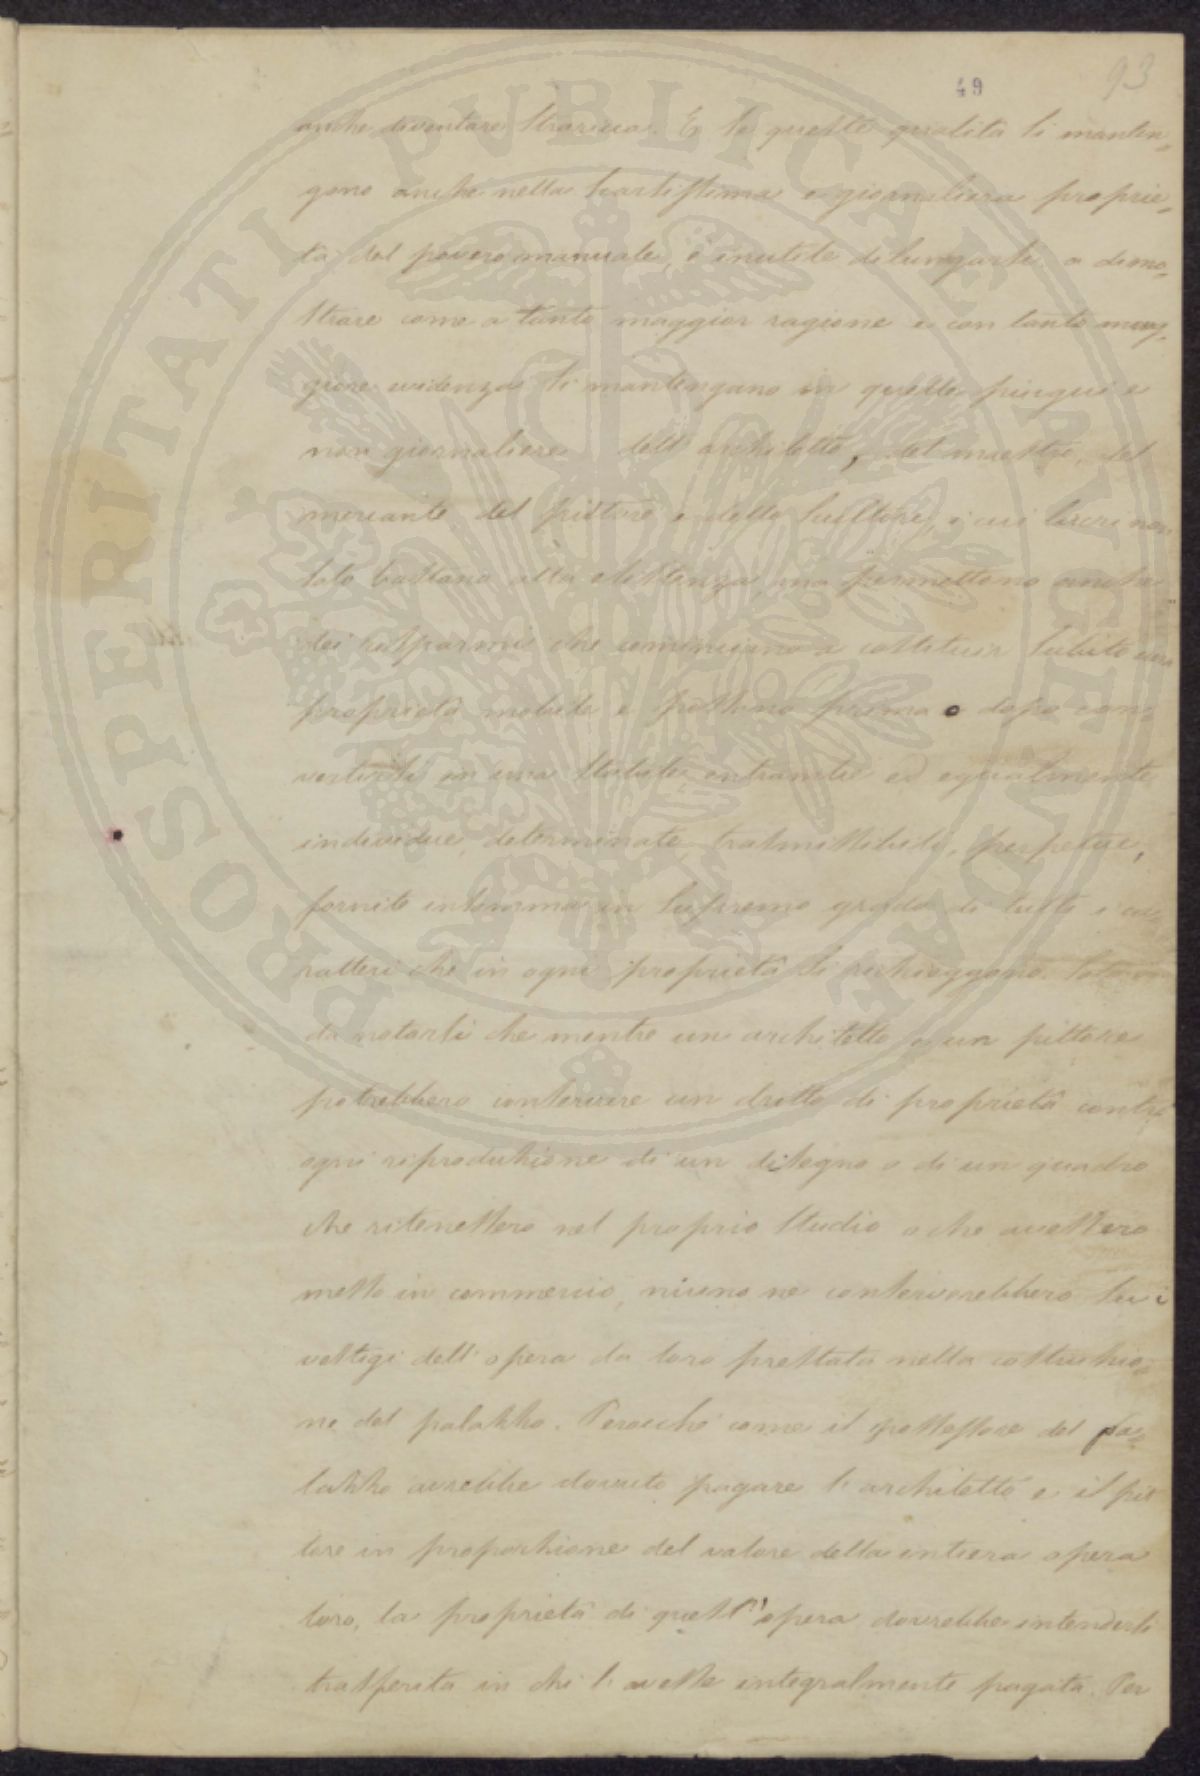 49
93
anche diventare straricca. E se queste qualità si manten-
gono anche nella scarsissima e giornaliera proprie-
tà del povero manuale, è inutile dilungarsi a dimo-
strare come a tanto maggior ragione e con tanto mag-
giore evidenza si mantengano in quelle pingui e
non giornaliere dell'architetto, del maestro, del
mercante del pittore e dello scultore, i cui lucri non
solo bastano alla esistenza, ma permettono anche
dei risparmi che cominciano a costituir subito una
proprietà mobile e possono prima o dopo con-
vertirsi in una stabile, entrambe ed egualmente
individue, determinate, trasmissibili, perpetue,
fornite insomma in supremo grado di tutti i ca-
ratteri che in ogni proprietà si richieggono. Solo
da notarsi che mentre un architetto o un pittore
potrebbero conservare un dritto di proprietà contro
ogni riproduzione di un disegno o di un quadro
che ritenessero nel proprio studio o che avessero
messo in commercio, niuno ne conserverebbero sui
vestigi dell'opera da loro prestata nella costruzio-
ne del palazzo. Perocché come il possessore del pa-
lazzo avrebbe dovuto pagare l'architetto e il pit
tore in proporzione del valore della intiera opera
loro, la proprietà di quest'opera dovrebbe intendersi
trasferita in chi l'avesse integralmente pagata. Per
PROSPERITATI PUBLICAE AUGENDAE